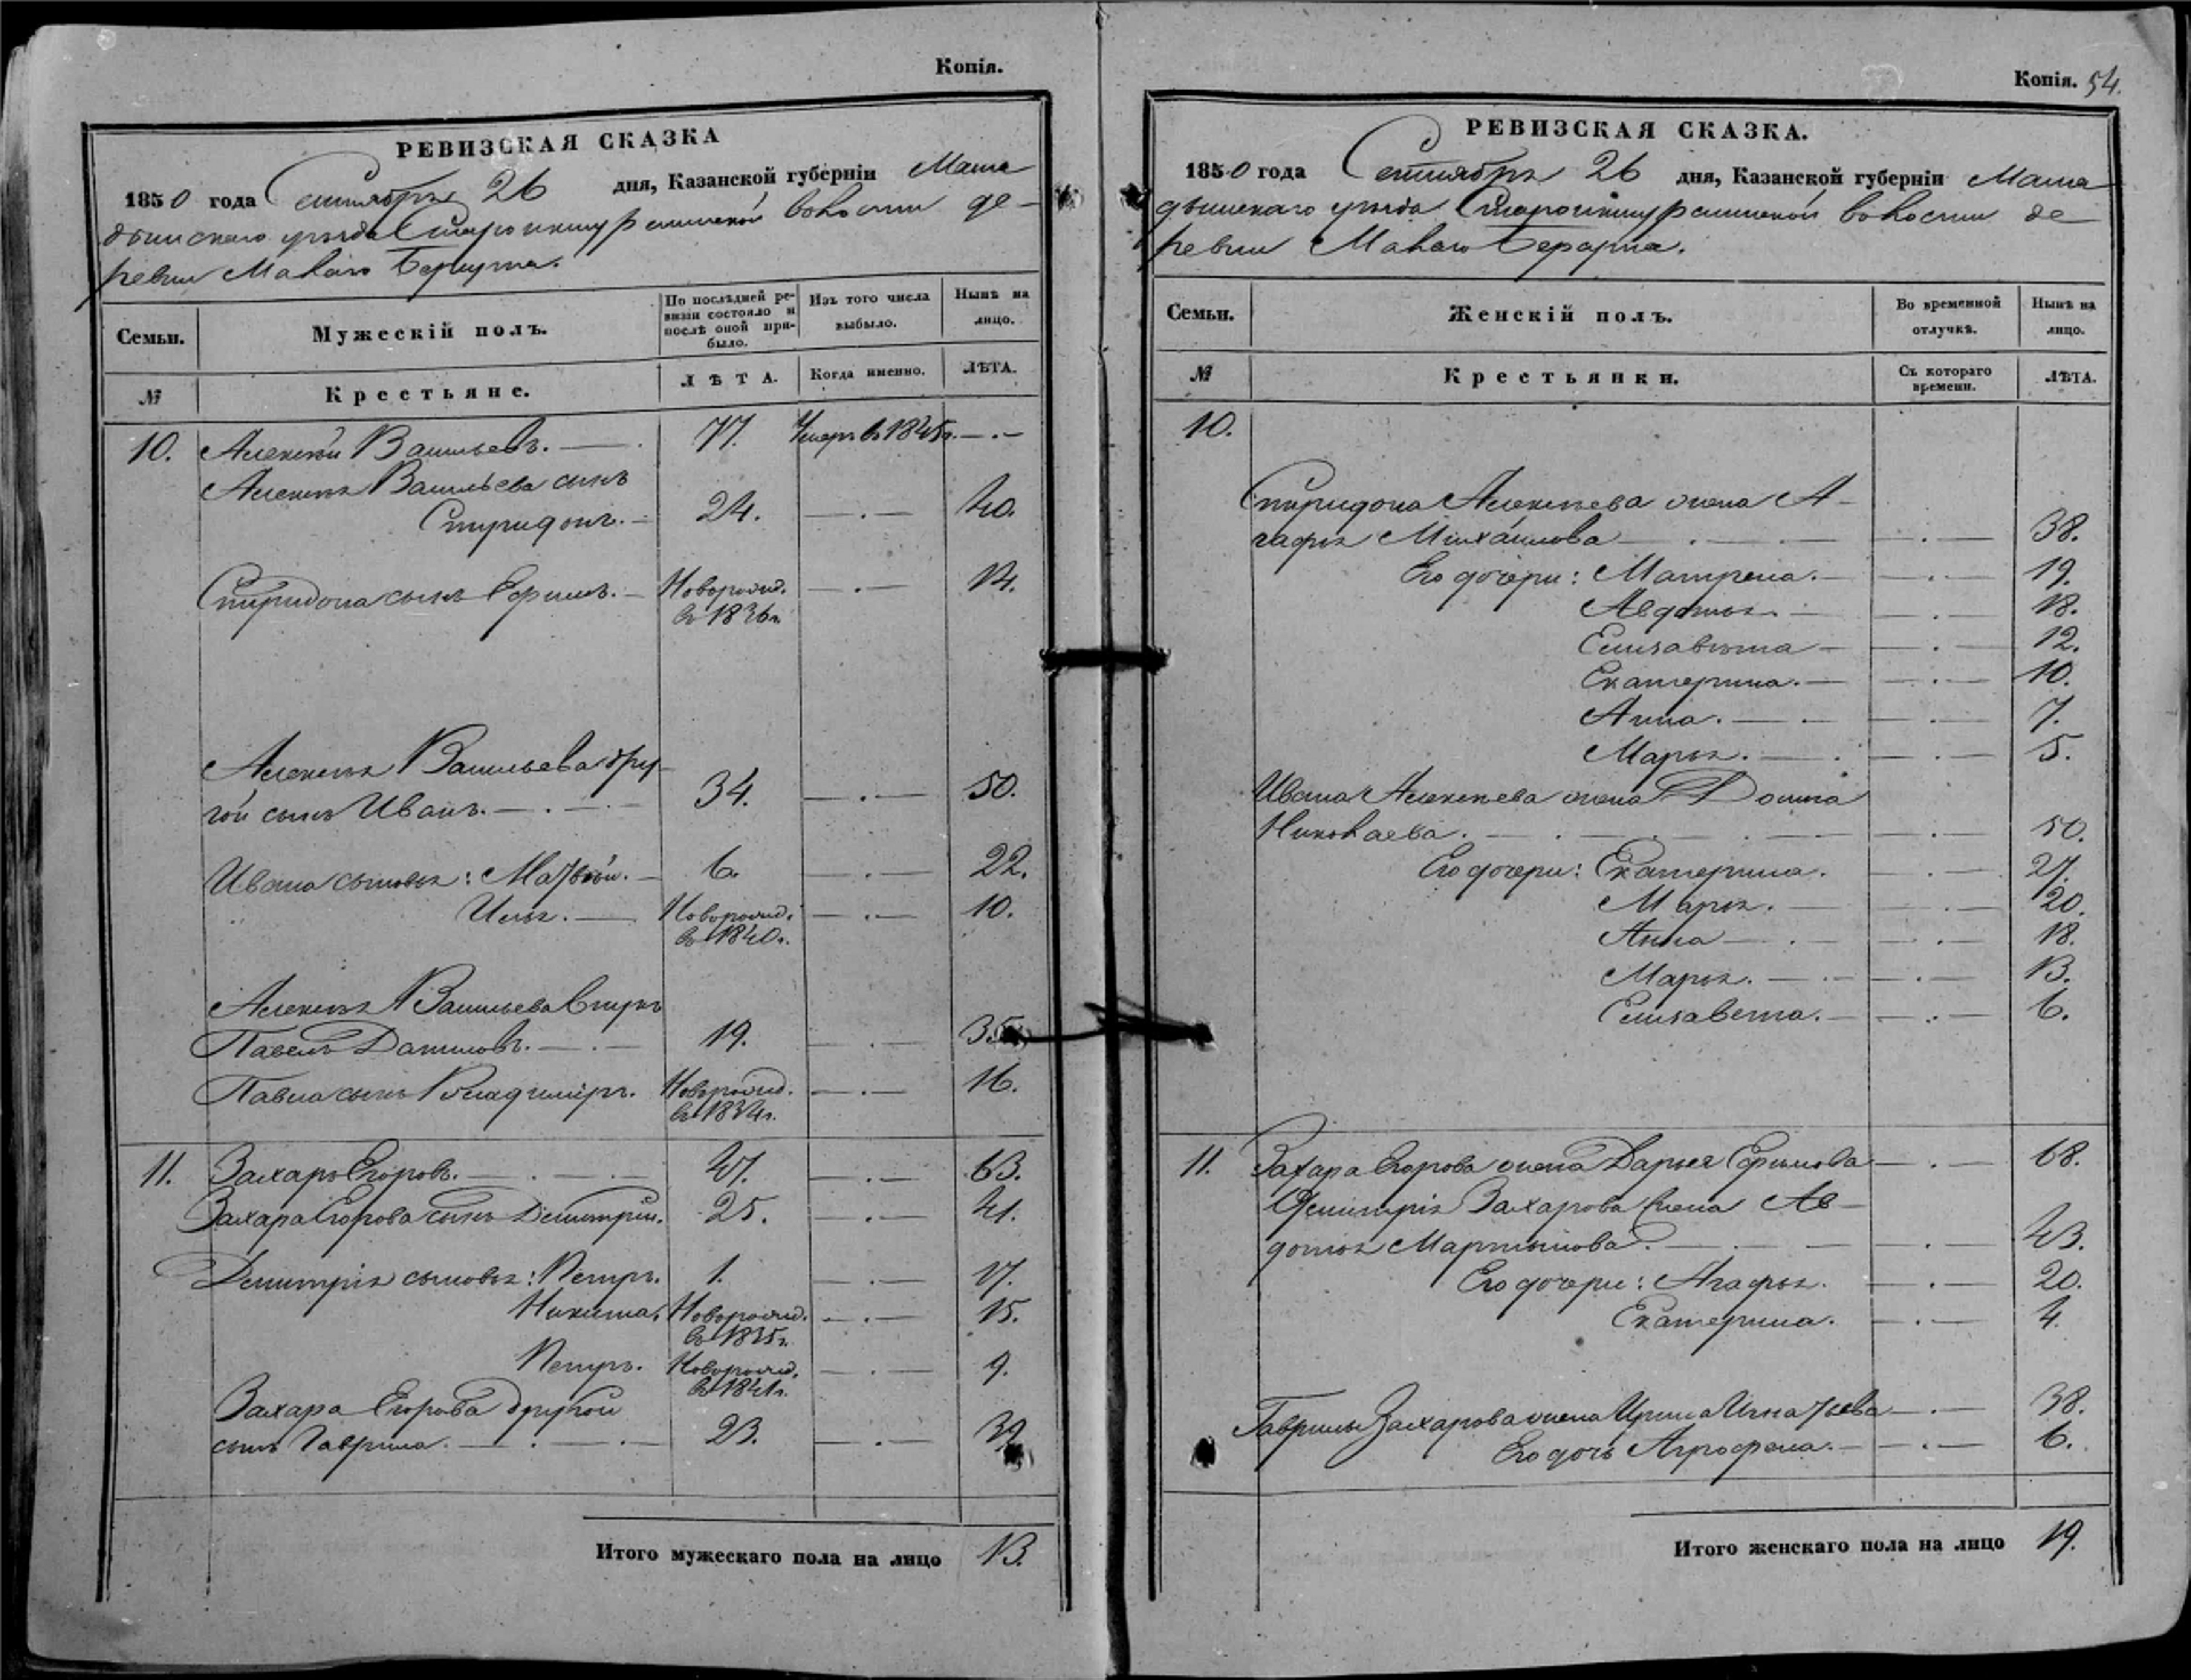 Копія.
РЕВИЗСКАЯ СКАЗКА
1850 года Сентября 26 дня, Казанской губерніи Мама
дышскаго уѣзда волости де-
ревни Малаго
Семьи.
Мужескій полъ.
По послѣдней ре-
визіи состояло и
послѣ оной при-
было.
Изъ того числа
выбыло.
Нынѣ на
лицо.
№
Крестьяне.
ЛѢТА.
Когда именно.
ЛѢТА.
10. Алексѣй Васильевъ. 77. Умеръ въ 1845г.
Алексѣя Васильева сынъ
Спиридонъ. 24. 40.
Спиридона сынъ Ефимъ. Новорожд. 14.
въ 1836г.
Алексѣя Васильева дру-
гой сынъ Иванъ. 34. 50.
Ивана сыновья: Матвѣй. 6. 22.
Илья. Новорожд. 10.
въ 1840г.
Алексѣя Васильева
Павелъ Даниловъ. 19. 35
Павла сынъ Владиміръ. Новорожд. 16.
въ 1834г.
11. Захаръ Егоровъ. 47. 63.
Захара Егорова сынъ Дмитрій. 25. 41.
Дмитрія сыновья: Петръ. 1. 17.
Никита. Новорожд. 15.
въ 1835г.
Петръ. Новорожд. 9.
въ 1841г.
Захара Егорова другой
сынъ Гаврила. 23. 39
Итого мужескаго пола на лицо 13.
Копія. 54.
РЕВИЗСКАЯ СКАЗКА.
1850 года Сентября 26 дня, Казанской губерніи Мама
дышскаго уѣзда волости де
ревни Малаго
Семьи.
Женскій полъ.
Во временной
отлучкѣ.
Нынѣ на
лицо.
№
Крестьянки.
Съ котораго
времени.
ЛѢТА.
10.
Спиридона Алексѣева жена А-
гафья Михайлова 38.
Его дочери: Матрена. 19.
Авдотья. 18.
Елизавета 12.
Екатерина. 10.
Анна. 7.
Марья. 5.
Ивана Алексѣева жена Домна
Николаева. 50.
Его дочери: Екатерина. 27.
Марья. 20.
Анна 18.
Марья. 13.
Елизавета. 6.
11. Захара Егорова жена Дарья Ефимова 68.
Дмитрія Захарова жена Ав-
дотья Мартынова. 43.
Его дочери: Агафья. 20.
Екатерина. 4.
Гаврилы Захарова жена Ирина Игнатьева 38.
Его дочь Агрофена. 6.
Итого женскаго пола на лицо 19.